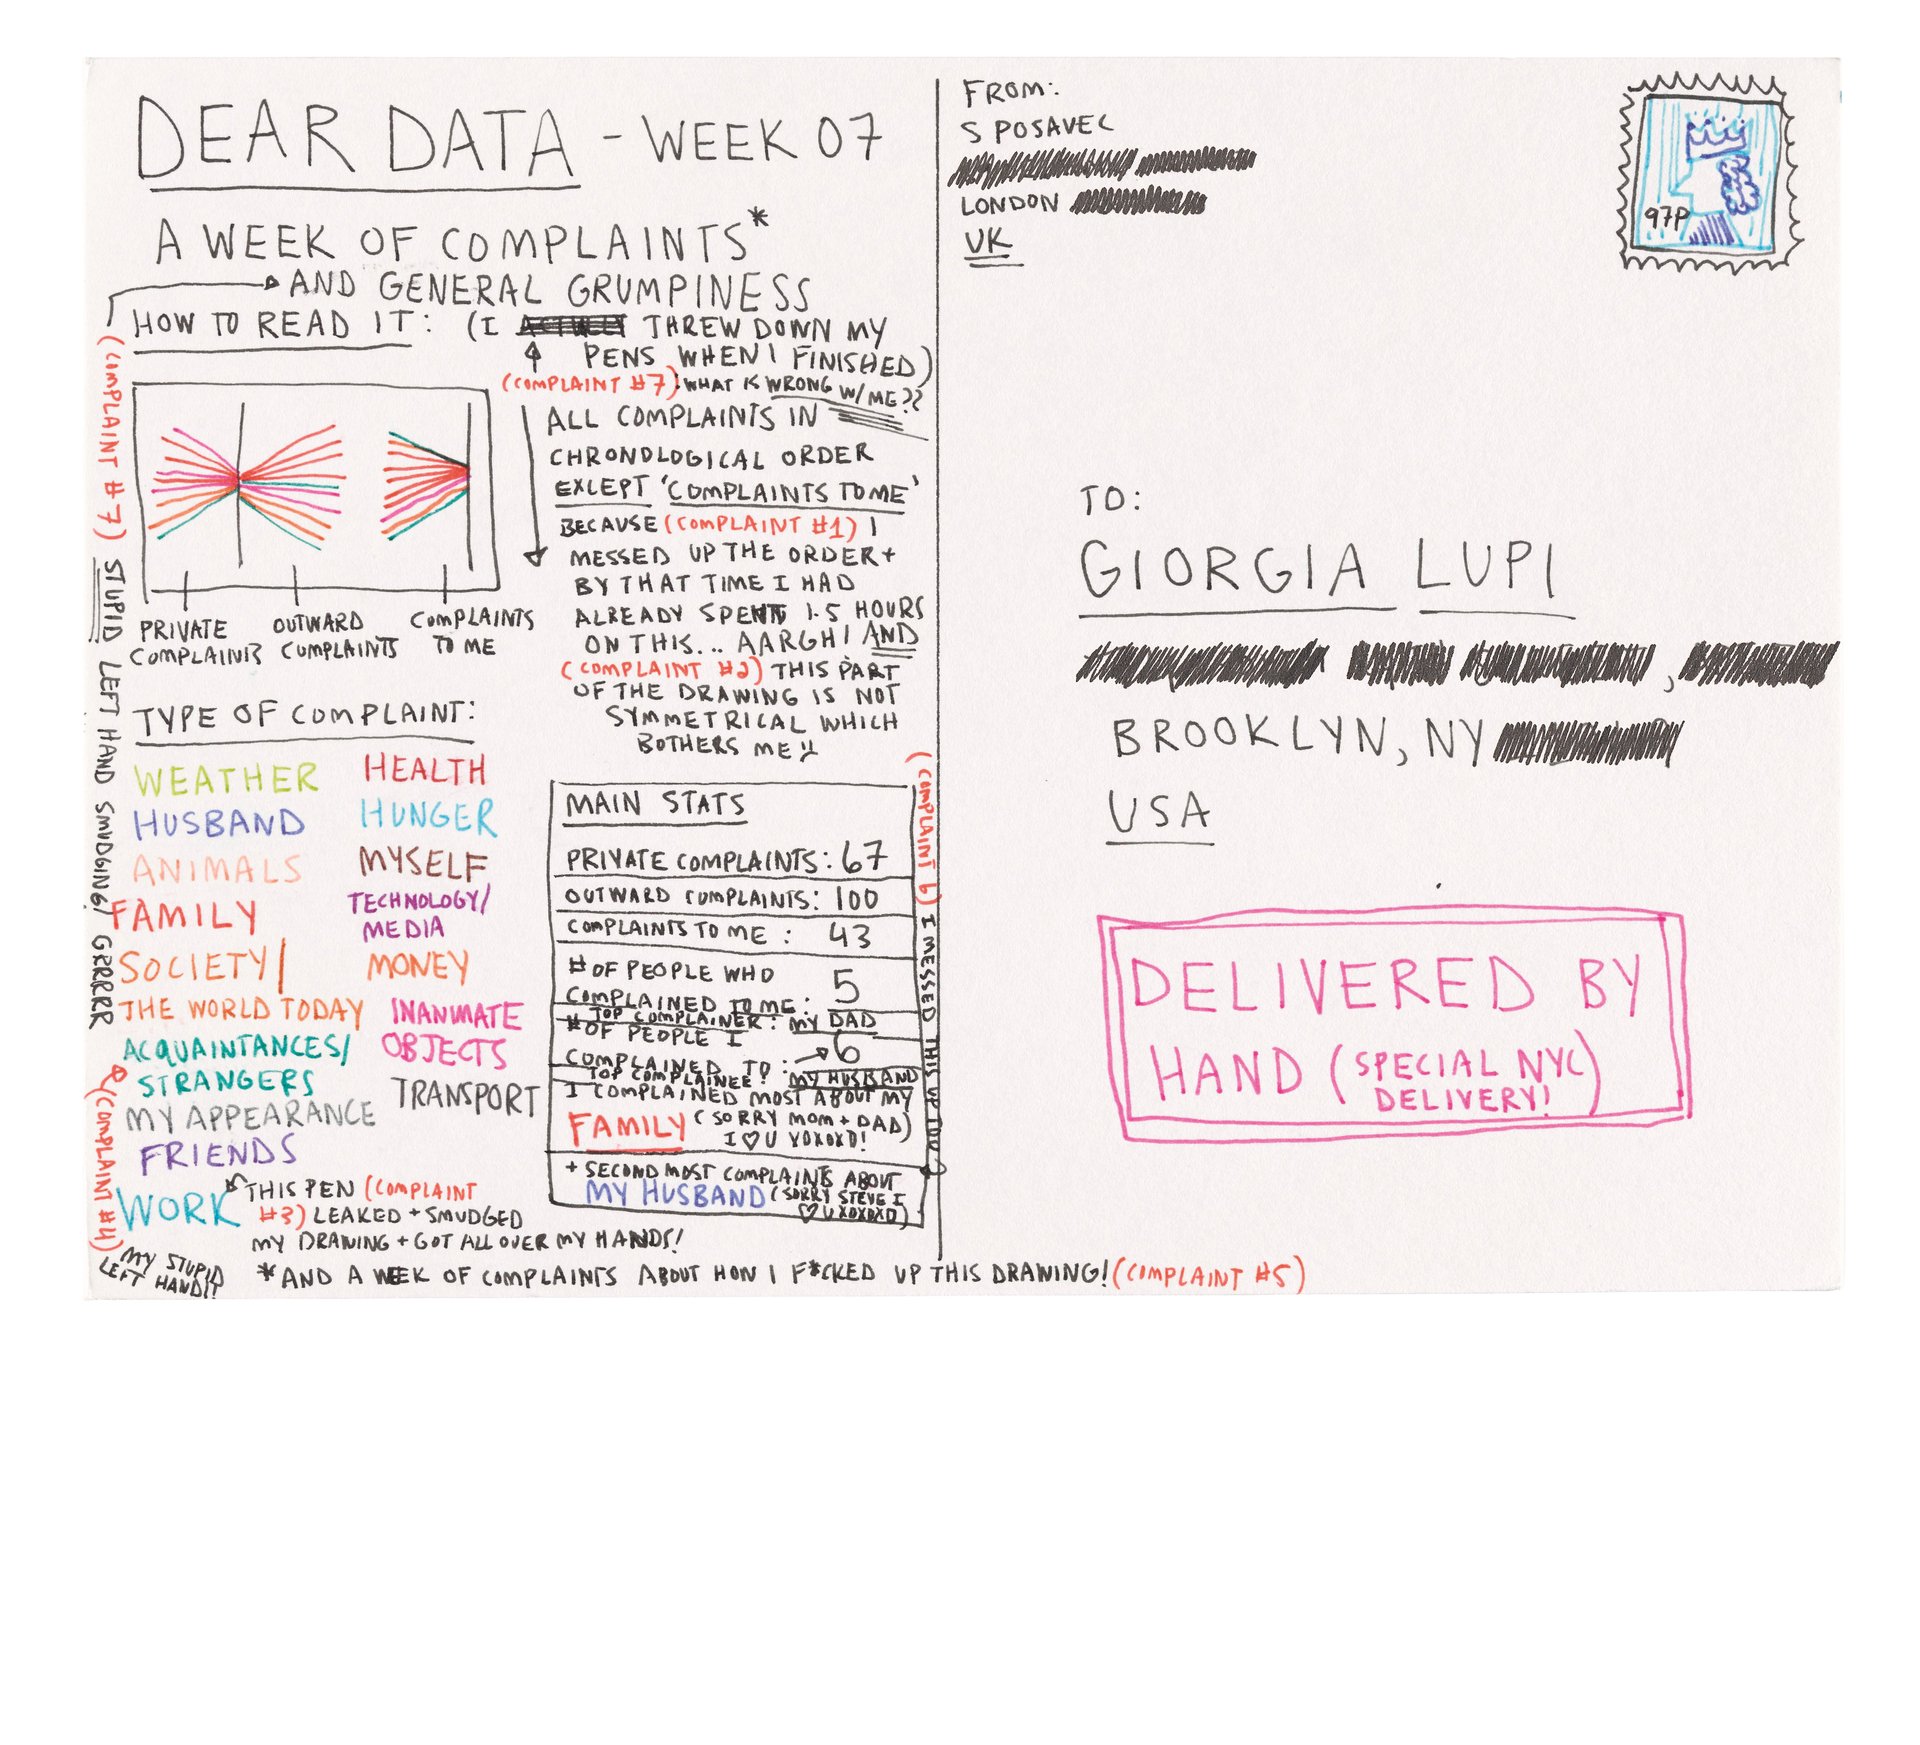 DEAR DATA - WEEK 07
A WEEK OF COMPLAINTS*
AND GENERAL GRUMPINESS
HOW TO READ IT: (I THREW DOWN MY
PENS WHEN I FINISHED)
(COMPLAINT #7) WHAT IS WRONG
W/ ME??
(COMPLAINT #7) STUPID LEFT HAND SMUDGING! GRRRRR
PRIVATE
COMPLAINTS
OUTWARD
COMPLAINTS
COMPLAINTS
TO ME
ALL COMPLAINTS IN
CHRONOLOGICAL ORDER
EXCEPT 'COMPLAINTS TO ME'
BECAUSE (COMPLAINT #1) I
MESSED UP THE ORDER +
BY THAT TIME I HAD
ALREADY SPENT 1.5 HOURS
ON THIS... AARGH! AND
(COMPLAINT #2) THIS PART
OF THE DRAWING IS NOT
SYMMETRICAL WHICH
BOTHERS ME
TYPE OF COMPLAINT:
WEATHER
HUSBAND
ANIMALS
FAMILY
SOCIETY/
THE WORLD TODAY
ACQUAINTANCES/
STRANGERS
MY APPEARANCE
FRIENDS
WORK
HEALTH
HUNGER
MYSELF
TECHNOLOGY/
MEDIA
MONEY
INANIMATE
OBJECTS
TRANSPORT
THIS PEN (COMPLAINT
#3) LEAKED + SMUDGED
MY DRAWING + GOT ALL OVER MY HANDS!
(COMPLAINT #4)
MY STUPID
LEFT HAND!!
MAIN STATS
PRIVATE COMPLAINTS: 67
OUTWARD COMPLAINTS: 100
COMPLAINTS TO ME: 43
# OF PEOPLE WHO
COMPLAINED TO ME: 5
TOP COMPLAINER: MY DAD
# OF PEOPLE I
COMPLAINED TO: 6
TOP COMPLAINEE: MY HUSBAND
I COMPLAINED MOST ABOUT MY
FAMILY (SORRY MOM + DAD)
I ♡ U XOXOXO!
+ SECOND MOST COMPLAINTS ABOUT
MY HUSBAND (SORRY STEVE I
♡ U XOXOXO)
(COMPLAINT 6) I MESSED THIS UP TOO
*AND A WEEK OF COMPLAINTS ABOUT HOW I F*CKED UP THIS DRAWING! (COMPLAINT #5)
FROM:
S POSAVEC
LONDON
UK
97P
TO:
GIORGIA LUPI
BROOKLYN, NY
USA
DELIVERED BY
HAND (SPECIAL NYC
DELIVERY!)